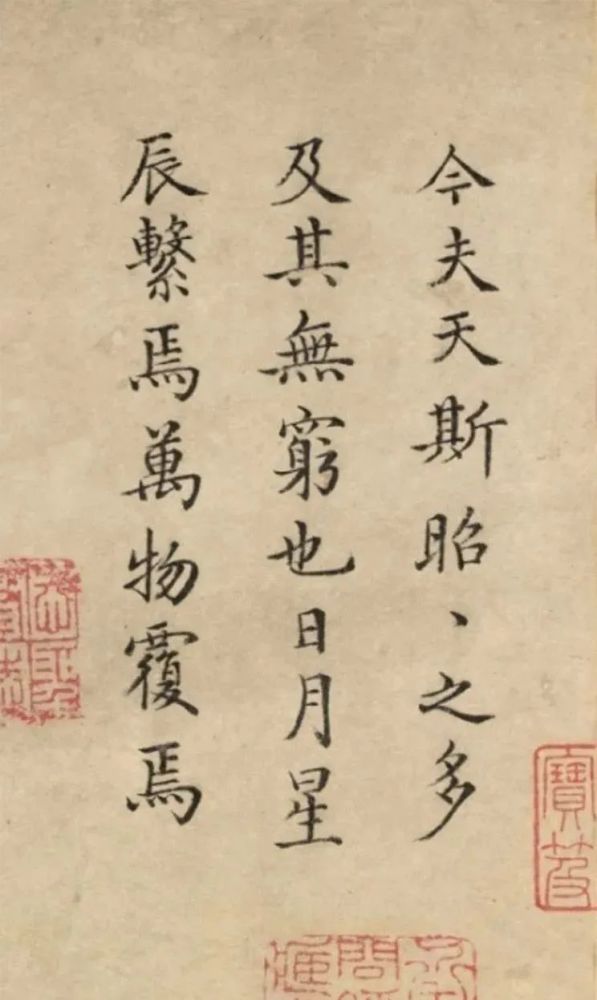 今夫天斯昭丶之多
及其無窮也日月星
辰繫焉萬物覆焉
寶笈